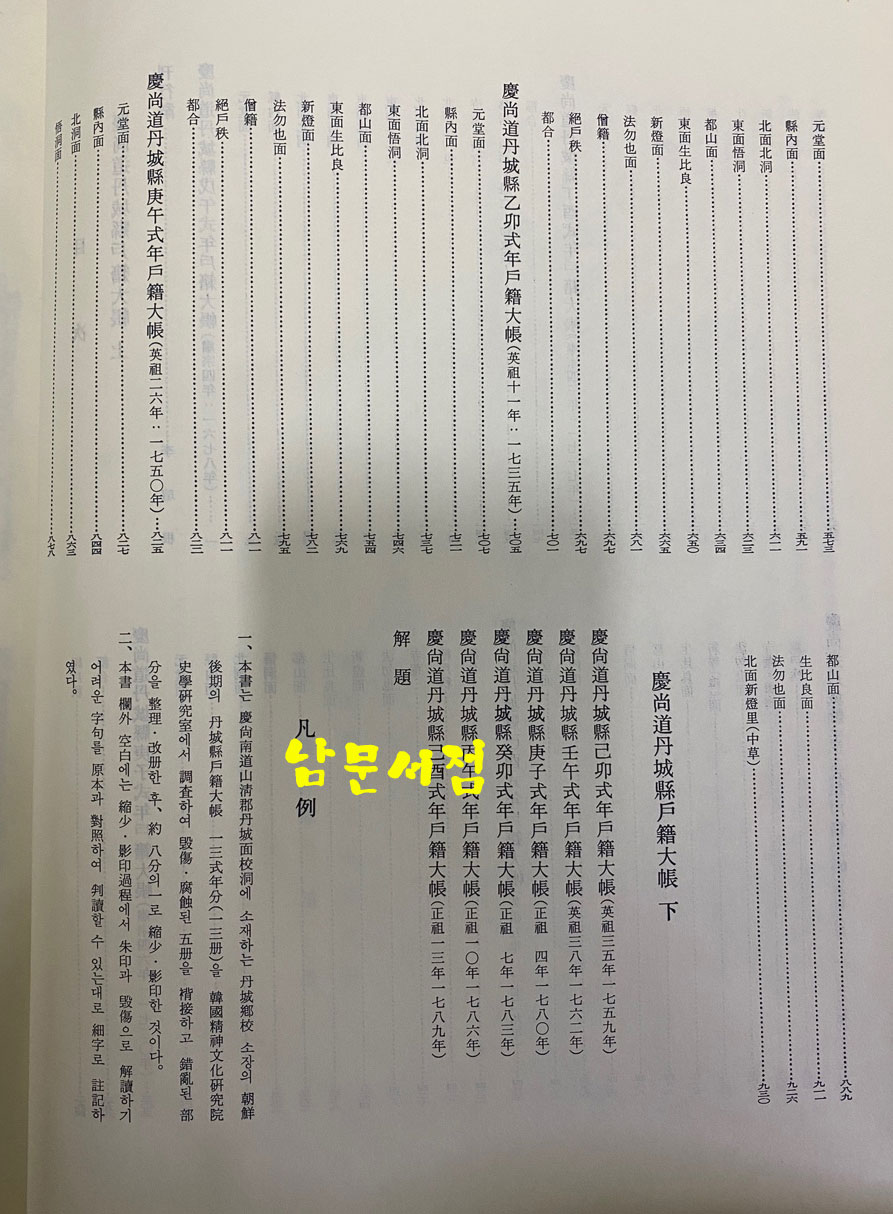 元堂面……五七三
縣內面……五九一
北面北洞……六一一
東面悟洞……六二三
都山面……六三四
東面生比良……六五〇
新燈面……六六五
法勿也面……六八一
僧籍……六九七
絕戶秩……六九七
都合……七〇一
慶尙道丹城縣乙卯式年戶籍大帳(英祖十一年：一七三五年)……七〇五
元堂面……七〇七
縣內面……七二一
北面北洞……七三七
東面悟洞……七四六
都山面……七五四
東面生比良……七六九
新燈面……七八二
法勿也面……七九五
僧籍……八一一
絕戶秩……八一一
都合……八二二
慶尙道丹城縣庚午式年戶籍大帳(英祖二六年：一七五〇年)……八二五
元堂面……八二七
縣內面……八四四
北洞面……八六三
悟洞面……八七八
都山面……八八九
生比良面……九一一
法勿也面……九二六
北面新燈里(中草)……九三〇
慶尙道丹城縣戶籍大帳 下
慶尙道丹城縣己卯式年戶籍大帳(英祖三五年一七五九年)
慶尙道丹城縣壬午式年戶籍大帳(英祖三八年一七六二年)
慶尙道丹城縣庚子式年戶籍大帳(正祖 四年一七八〇年)
慶尙道丹城縣癸卯式年戶籍大帳(正祖 七年一七八三年)
慶尙道丹城縣丙午式年戶籍大帳(正祖一〇年一七八六年)
慶尙道丹城縣己酉式年戶籍大帳(正祖一三年一七八九年)
解題
凡例
一、本書는 慶尙南道山淸郡丹城面校洞에 소재하는 丹城鄕校 소장의 朝鮮
後期의 丹城縣戶籍大帳 一三式年分(一三册)을 韓國精神文化硏究院
史學硏究室에서 調査하여 毁傷·腐蝕된 五册을 褙接하고 錯亂된 部
分을 整理·改册한 후、約 八分의一로 縮少·影印한 것이다。
二、本書 欄外 空白에는 縮少·影印過程에서 朱印과 毁傷으로 解讀하기
어려운 字句를 原本과 對照하여 判讀할 수 있는대로 細字로 註記하
였다。
남문서점